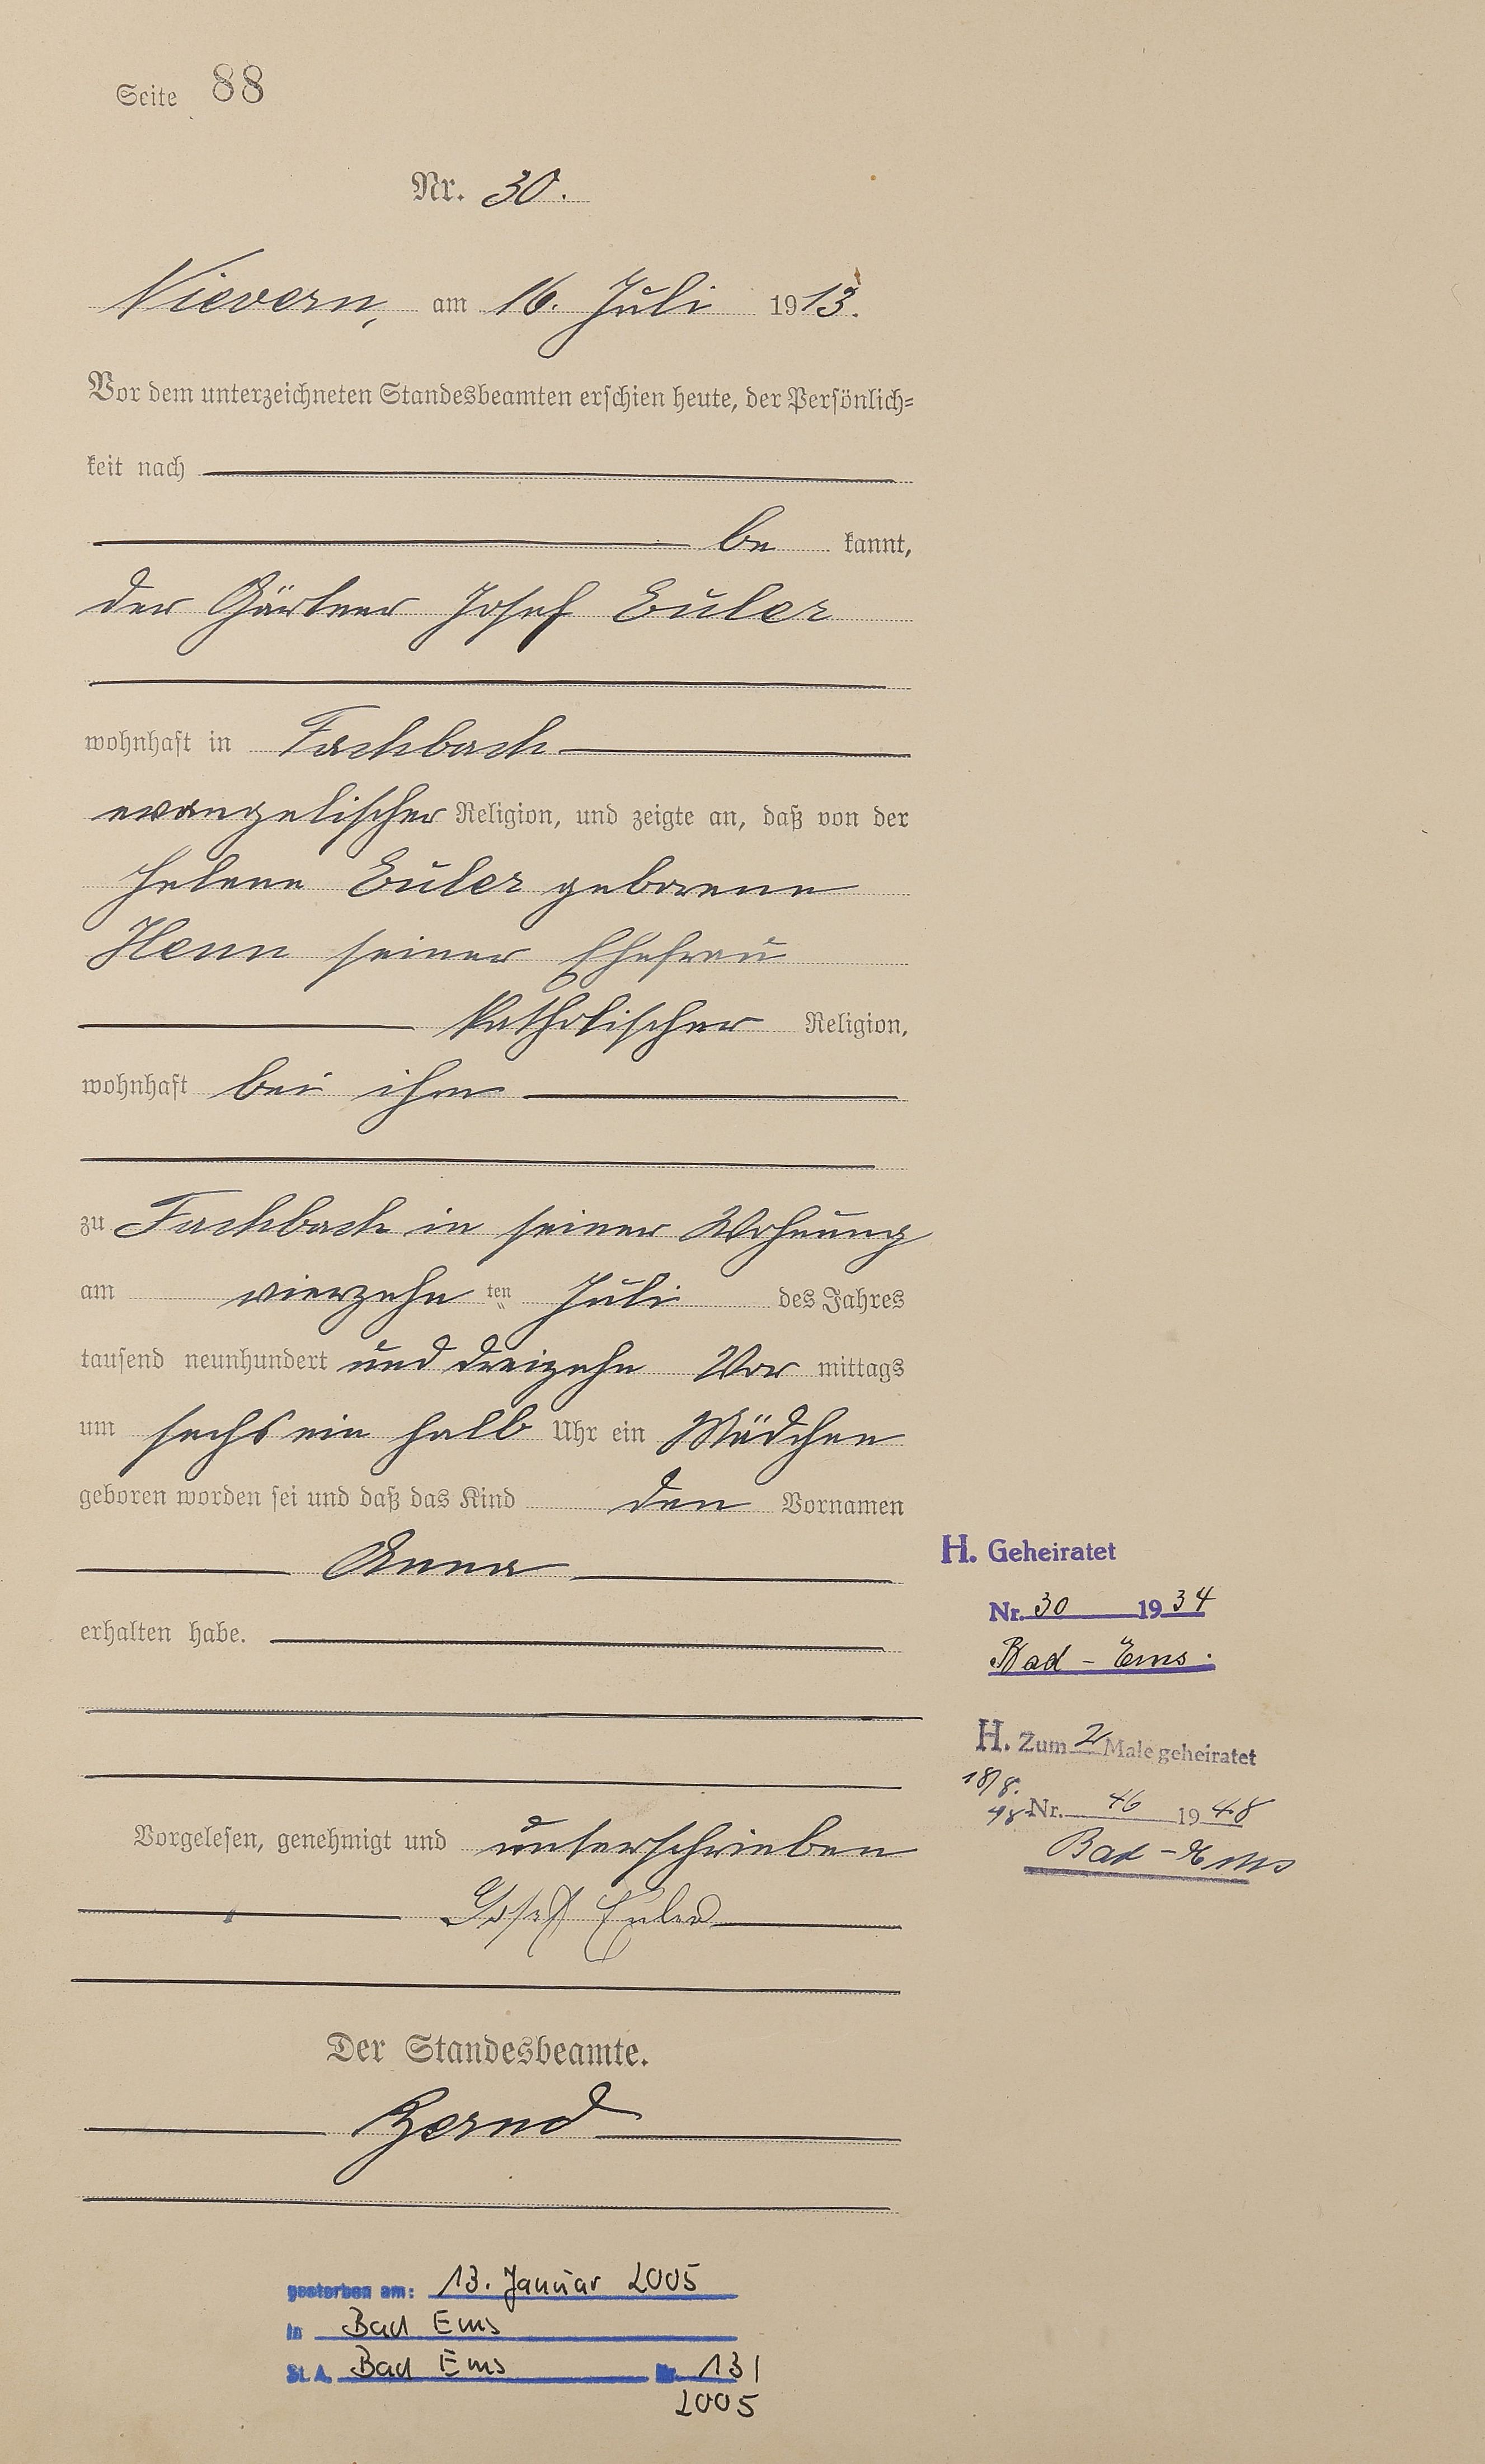 Seite 88
Nr. 30.
Nievern, am 16. Juli 1913.
Vor dem unterzeichneten Standesbeamten erschien heute, der Persönlich-
keit nach
be kannt,
der Gärtner Josef Euler
wohnhaft in Fachbach
evangelischer Religion, und zeigte an, daß von der
Helene Euler geborene
Henn seiner Ehefrau
katholischer Religion,
wohnhaft bei ihm
zu Fachbach in seiner Wohnung
am vierzehn ten Juli des Jahres
tausend neunhundert und dreizehn Vor mittags
um sechs ein halb Uhr ein Mädchen
geboren worden sei und daß das Kind den Vornamen
Anna
erhalten habe.
H. Geheiratet
Nr. 30 1934
Bad - Ems.
H. Zum 2 Male geheiratet
18/8.
48 Nr. 46 1948
Bad - Ems
Vorgelesen, genehmigt und unterschrieben
Josef Euler
Der Standesbeamte.
gestorben am: 13. Januar 2005
in Bad Ems
St. A. Bad Ems Nr. 13/
2005